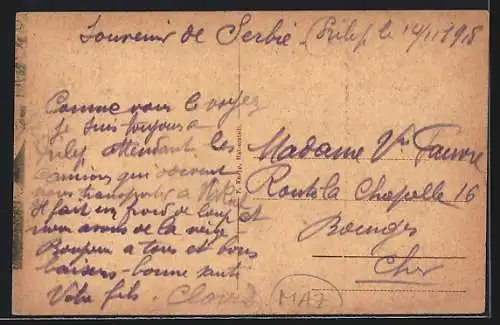 Souvenir de Serbie. Prilep le 14/1 1918
Comme vous le voyez
je suis toujours a
Prilep attendant les
camions qui doivent
nous transporter a
Il fait un froid de loup et
nous avons de la neige
a tous et bons
baisers - bonne santé
Votre fils.
MAZ
Madame Vve Fauvre
Route la Chapelle 16
Bourges
Cher